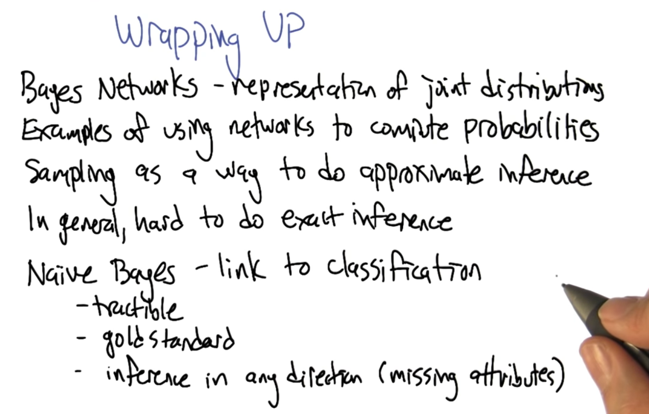 Wrapping UP
Bayes Networks - representation of joint distributions
Examples of using networks to compute probabilities
Sampling as a way to do approximate inference
In general, hard to do exact inference
Naive Bayes - link to classification
- tractible
- gold standard
- inference in any direction (missing attributes)